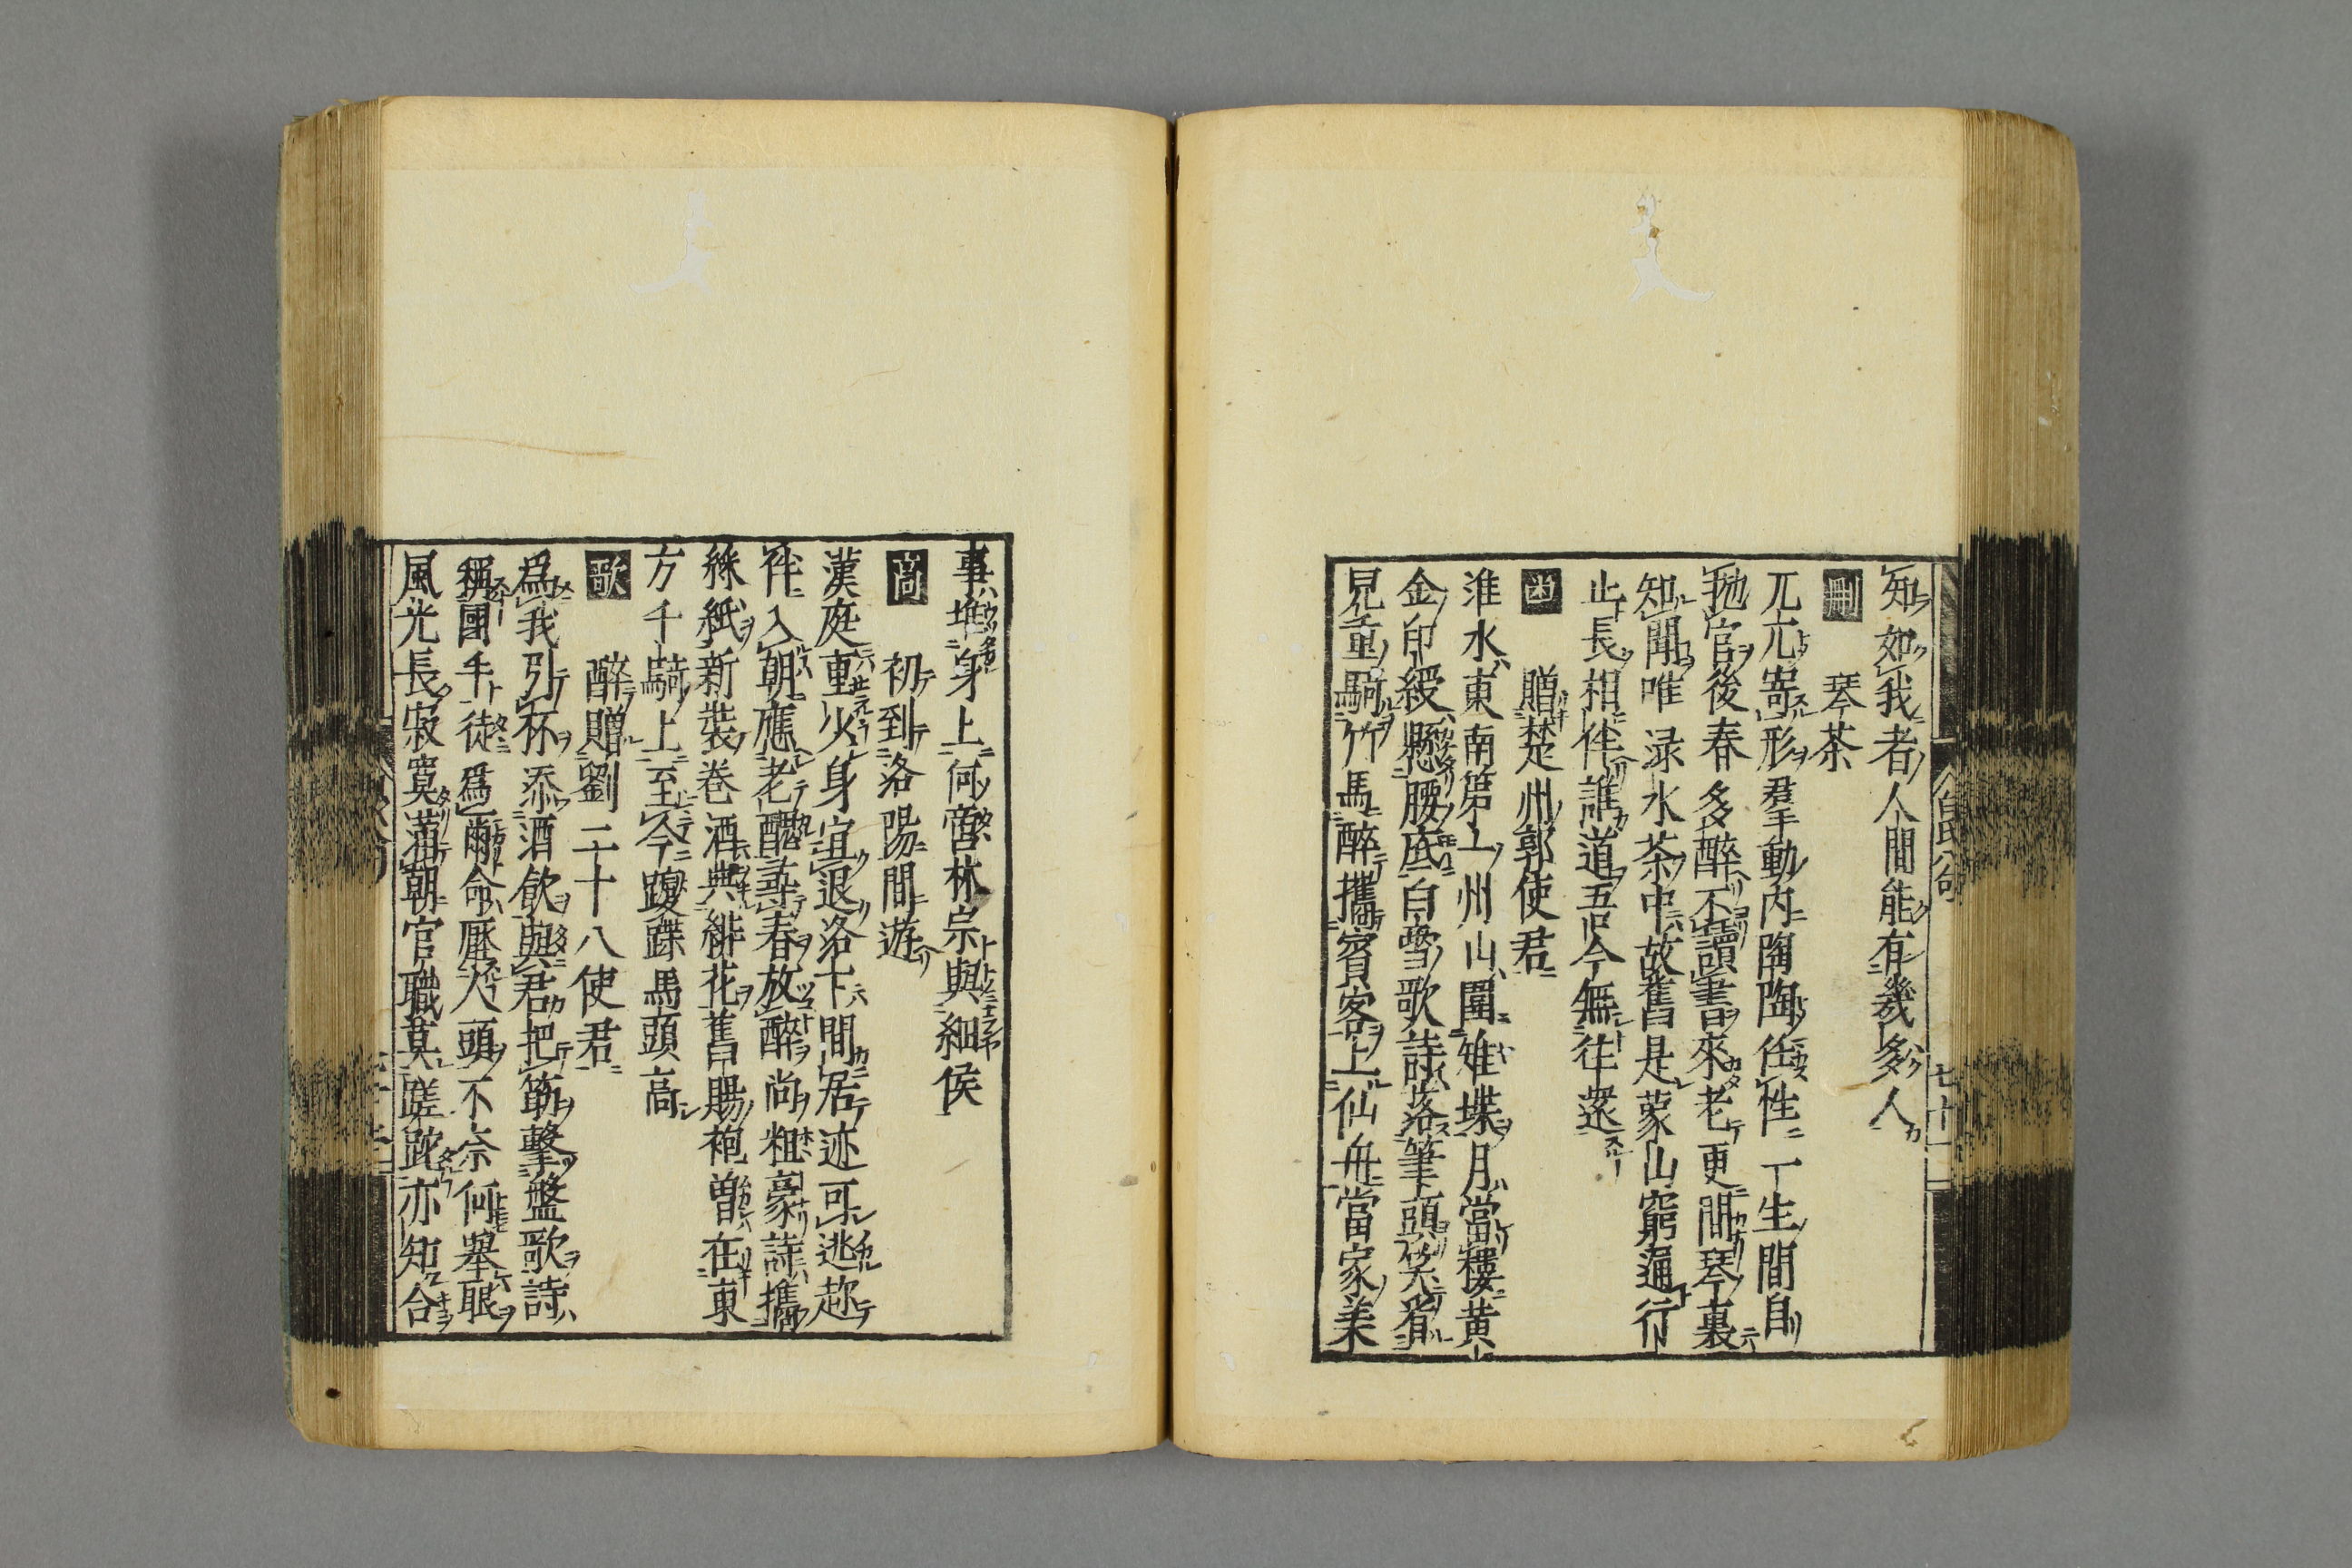 知如我者人間能有幾多人
琴茶
兀兀寄形羣動內陶陶任性一生間自
抛官後春多醉不讀書來老更閒琴裏
知聞唯渌水茶中故舊是蒙山窮通行
止長相伴誰道吾今無往還
贈楚州郭使君
淮水東南第一州山圍雉堞月當樓黃
金印綬懸腰底白雪歌詩落筆頭笑看
兒童騎竹馬醉攜賓客上仙舟當家美
事堆身上何啻林宗與細侯
初到洛陽間遊
漢庭重少身宜退洛下間居迹可逃趂
伴入朝應老醜尋春放醉尚粗豪詩攜
綵紙新裝卷酒典緋花舊賜袍曾在東
方千騎上至今躞蹀馬頭高
歌
醉贈劉二十八使君
爲我引杯添酒飲與君把筯擊盤歌詩
稱國手徒爲爾命壓人頭不奈何舉眼
風光長寂寞滿朝官職莫蹉跎亦知合